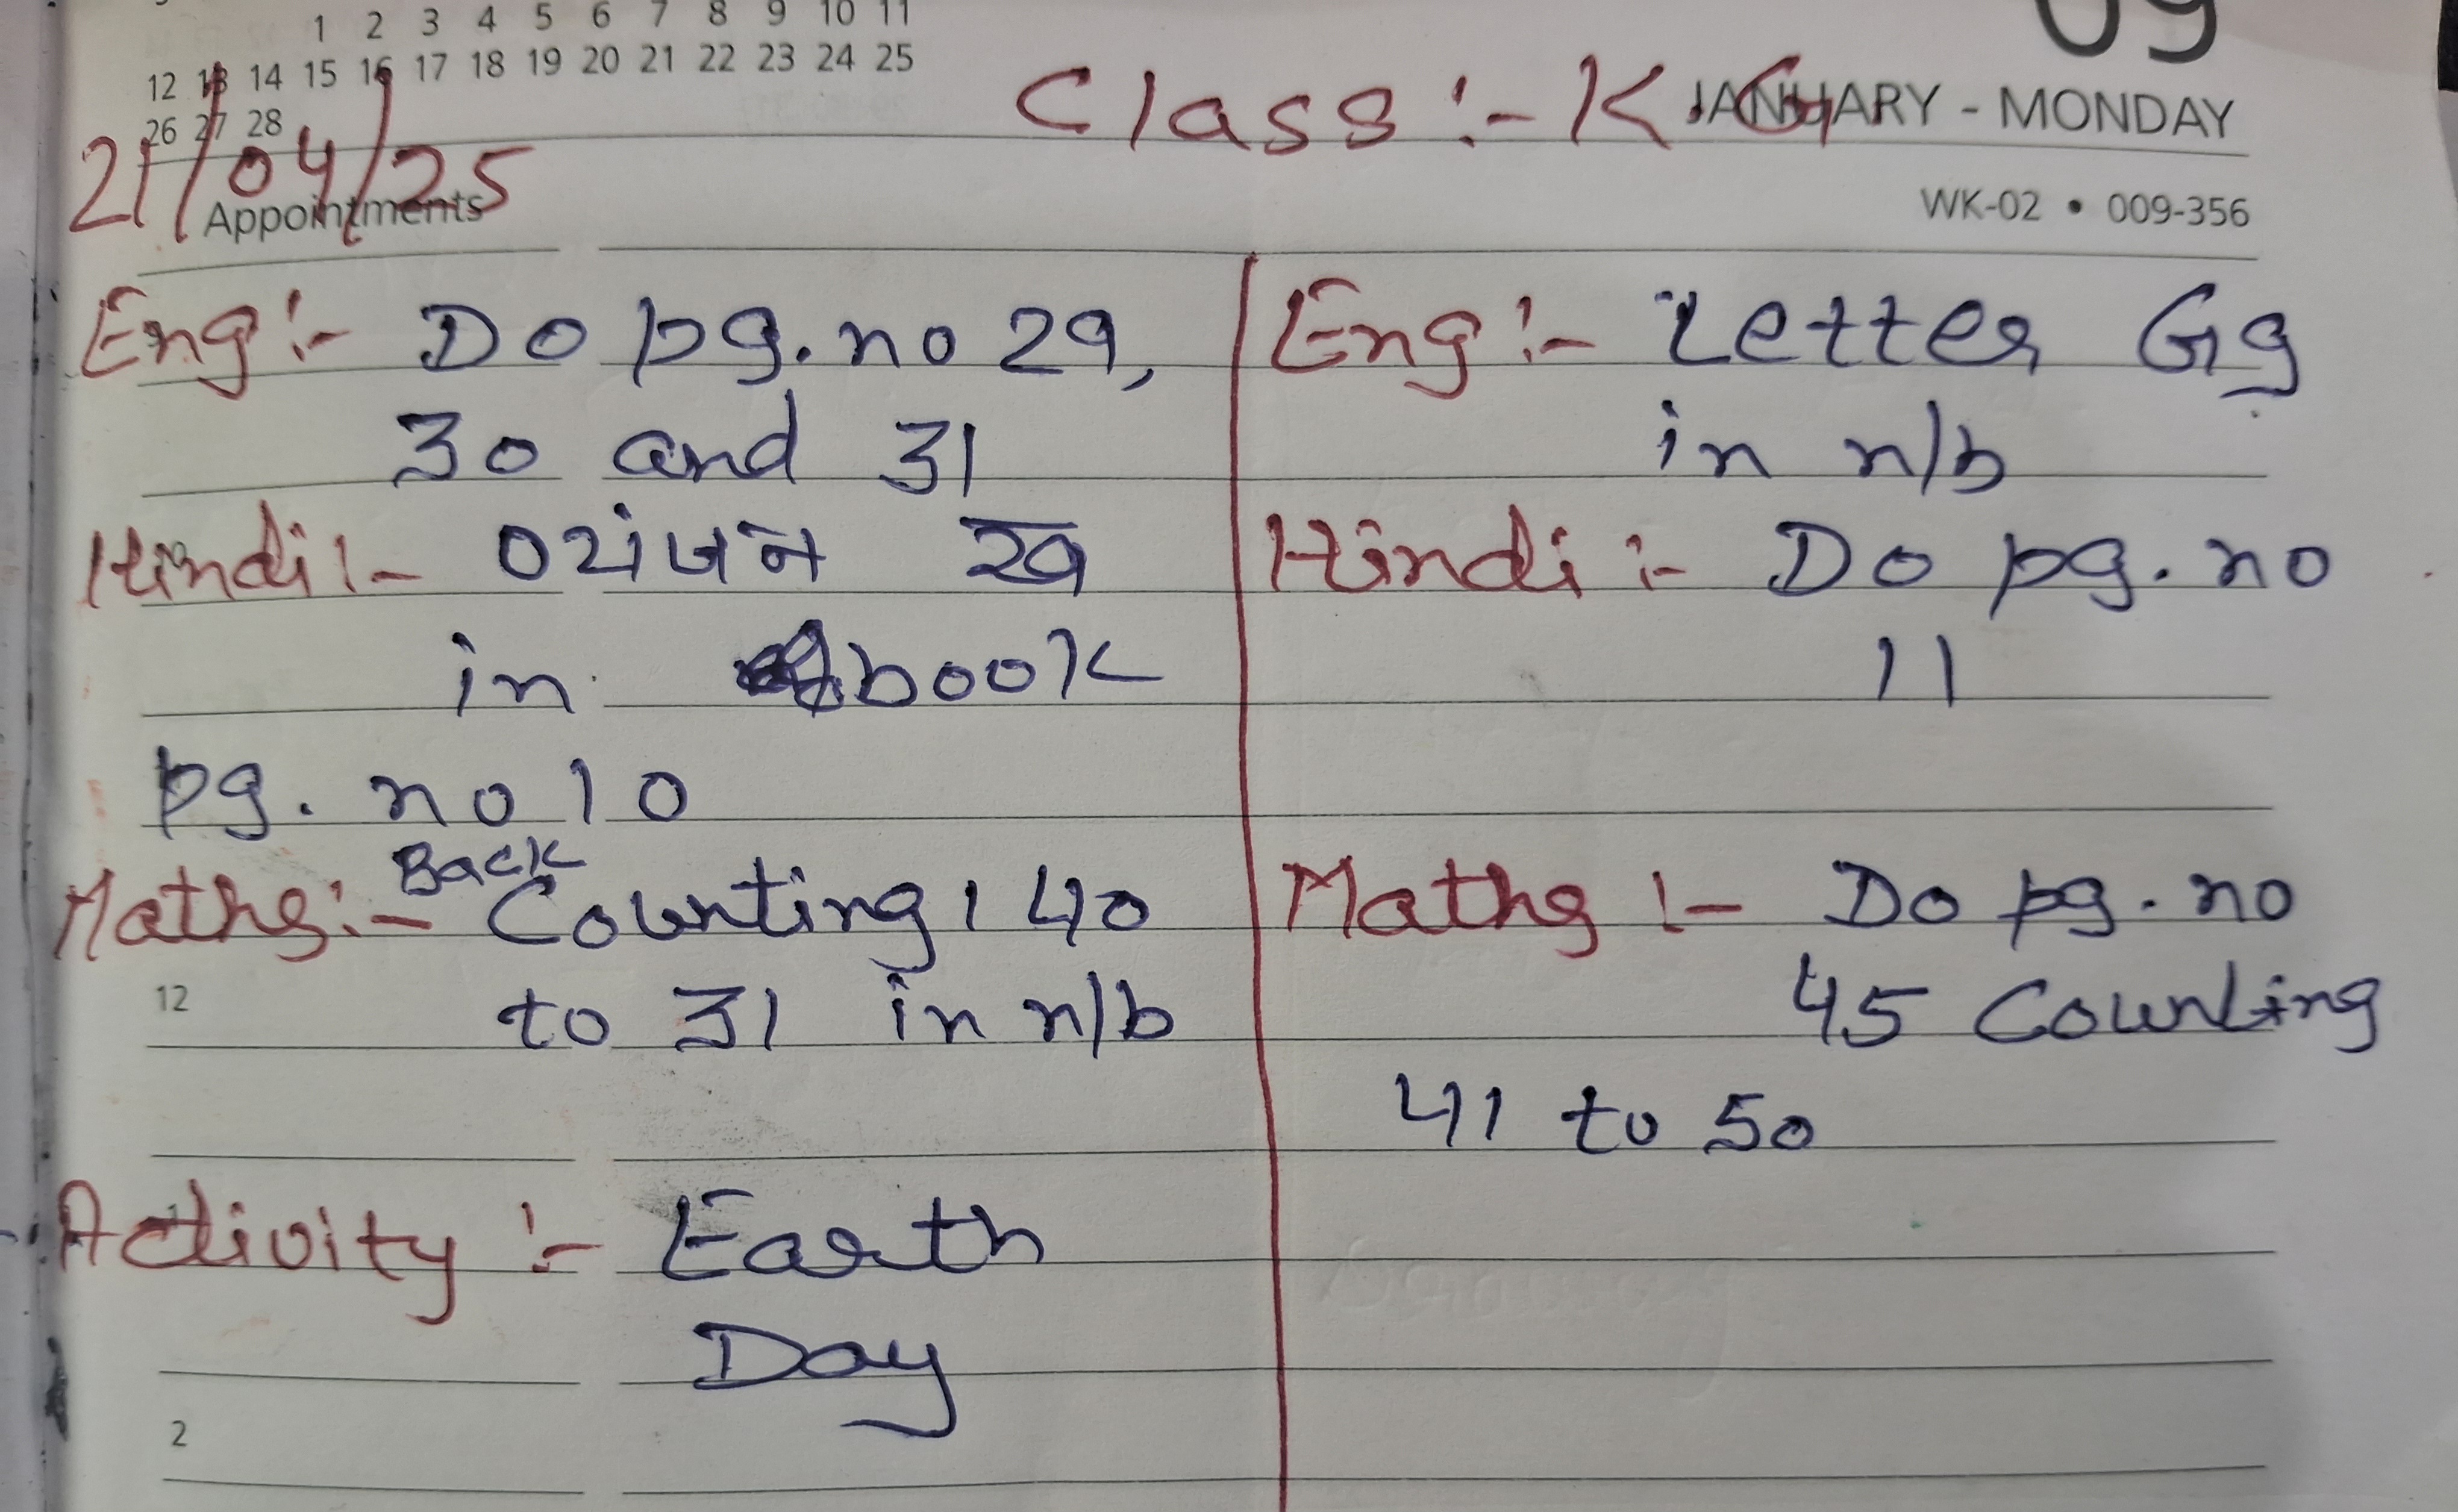 1 2 3 4 5 6 7 8 9 10 11
12 13 14 15 16 17 18 19 20 21 22 23 24 25
26 27 28
09
JANUARY - MONDAY
Class :- K G
21/04/25
Appointments
WK-02 • 009-356
Eng :- Do pg. no 29,
30 and 31
Hindi :- व्यंजन ख
in book
pg. no 10
Maths :- Back Counting : 40
12
to 31 in n/b
Activity :- Earth
Day
2
Eng :- Letter Gg
in n/b
Hindi :- Do pg. no
11
Maths :- Do pg. no
45 Counting
41 to 50